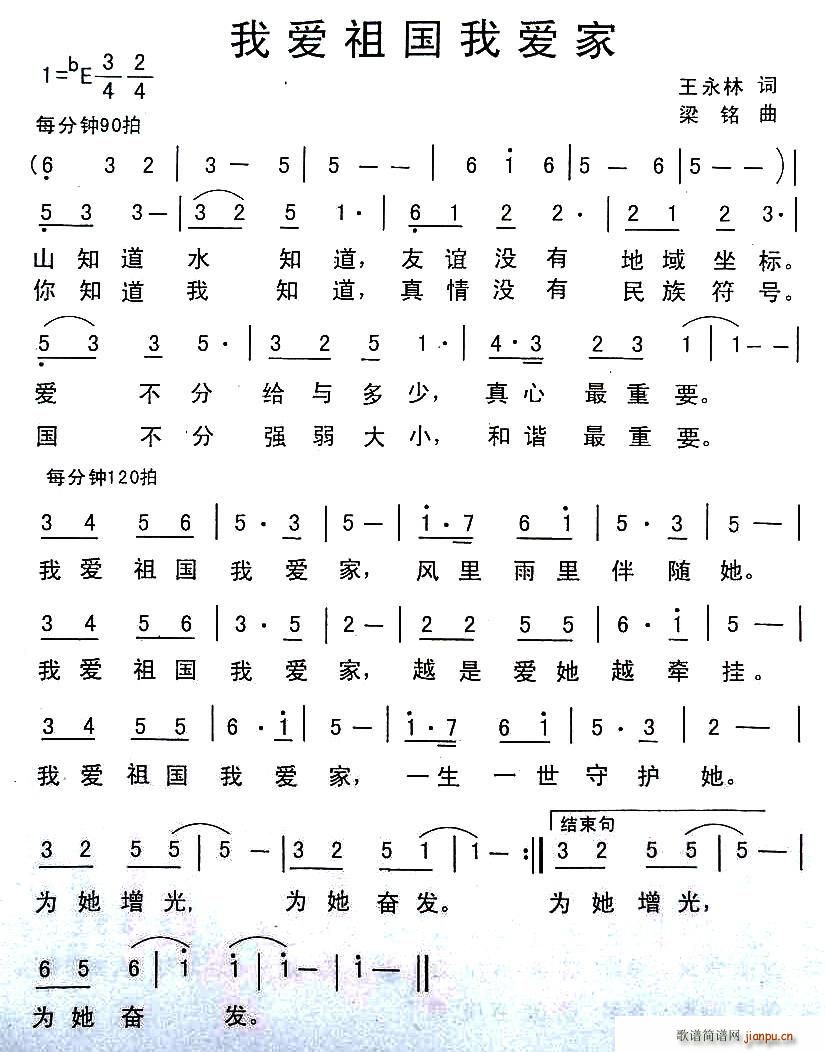 我爱祖国我爱家
1=bE 3/4 2/4
王永林 词
每分钟90拍
梁 铭 曲
(6 3 2 | 3 — 5 | 5 — — | 6 i 6 | 5 — 6 | 5 — — )|
5 3 3 — | 3 2 5 1 · | 6 1 2 2 · | 2 1 2 3 ·
山知道水 知道，友谊没有 地域坐标。
你知道我 知道，真情没有 民族符号。
5 3 3 5 · | 3 2 5 1 · | 4 · 3 2 3 1 | 1 — |
爱 不分 给与多少，真心 最重要。
国 不分 强弱大小，和谐 最重要。
每分钟120拍
3 4 5 6 | 5 · 3 | 5 — | i · 7 6 i | 5 · 3 | 5 — |
我爱 祖国 我爱家，风里雨里伴随她。
3 4 5 6 | 3 · 5 | 2 — | 2 2 5 5 | 6 · i | 5 — |
我爱 祖国 我爱家，越是爱她越牵挂。
3 4 5 5 | 6 · i | 5 — | i · 7 6 i | 5 · 3 | 2 — |
我爱祖国我爱家，一生一世守护她。
结束句
3 2 5 5 | 5 — | 3 2 5 1 | 1 — :‖ 3 2 5 5 | 5 — |
为她增光，为她奋发。为她增光，
6 5 6 i | i | i — | i — ‖
为她奋 发。
歌谱简谱网 jianpu.cn